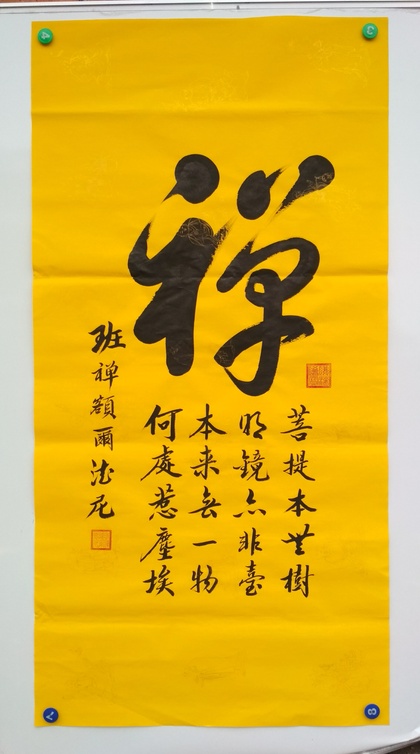 禅
菩提本無樹
明鏡亦非臺
本来無一物
何處惹塵埃
班禅額爾德尼